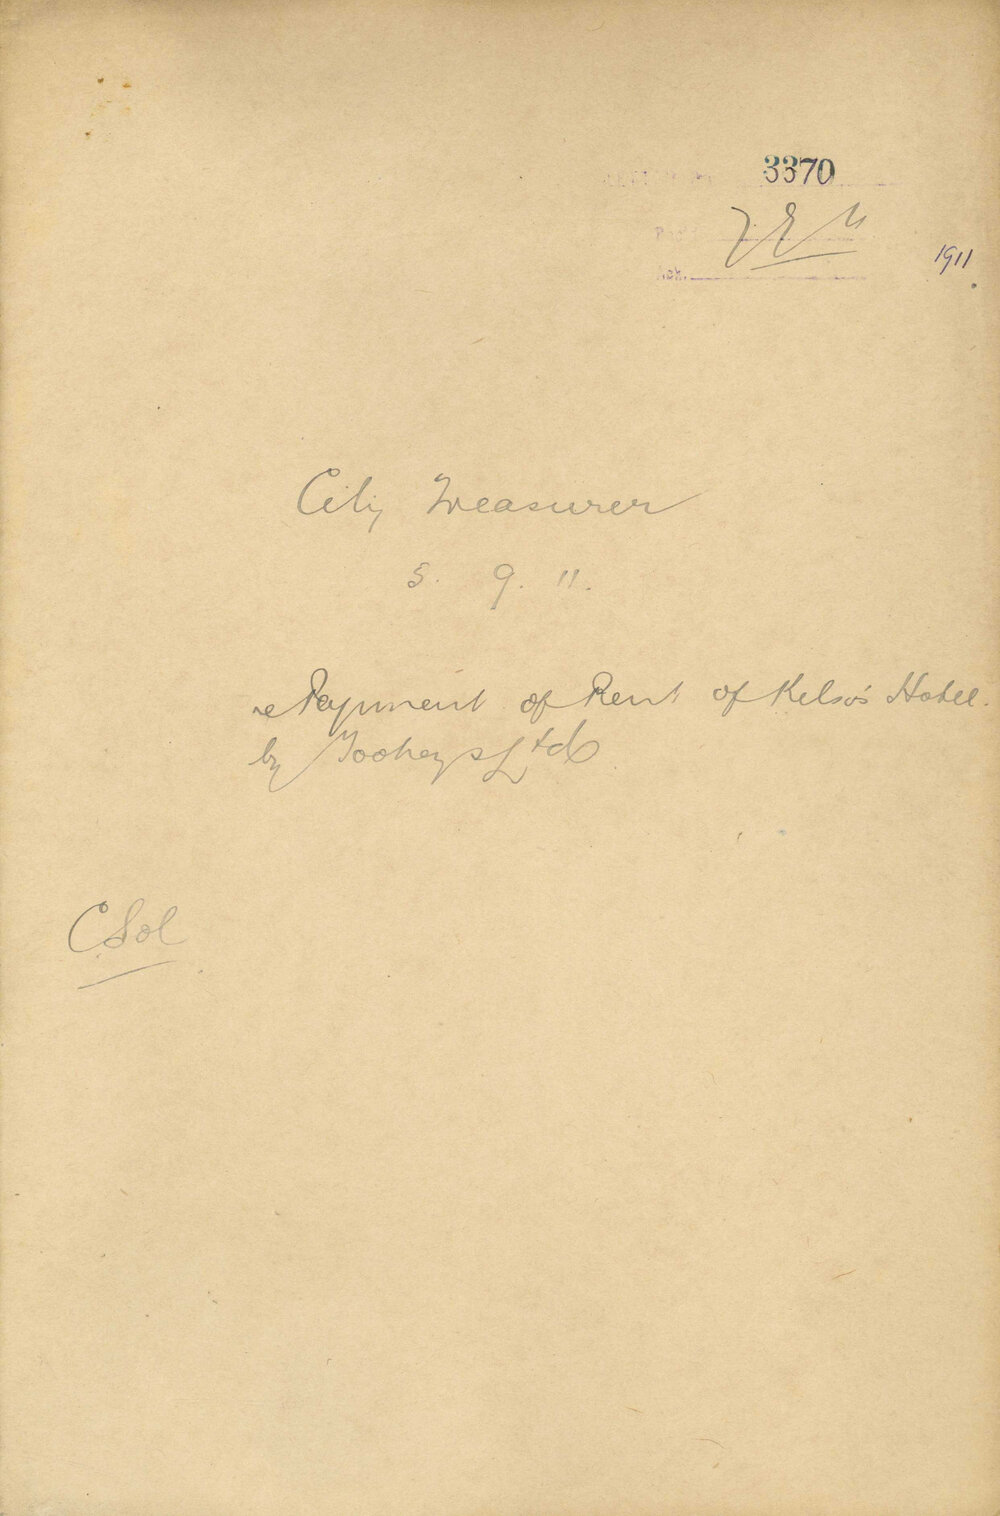 3370
1911
City Treasurer
5. 9. 11.
re Payment of Rent of Kelso's Hotel.
by Tooheys Ltd
C Sol